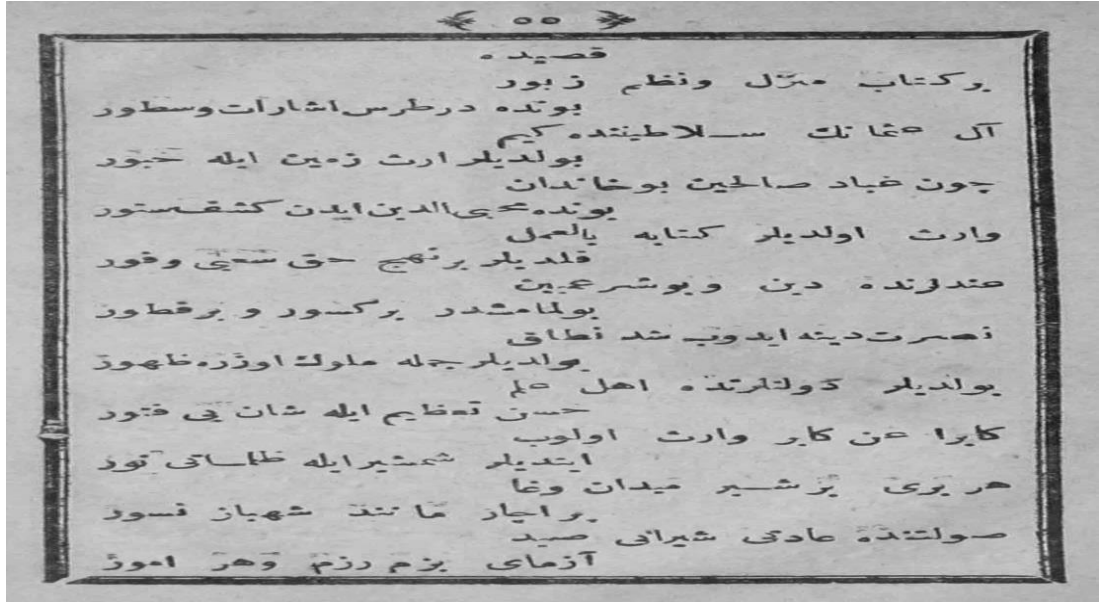 ٥٥
قصيده
بر كتاب منزل ونظم زبور
بونده در طرس اشارات وسطور
آل عثمانك سلاطيننده كيم
بولديلر ارث زمين ايله حبور
چون عباد صالحين بو خاندان
بونده محيى الدين ايدن كشف ستور
وارث اولديلر كتابه بالعمل
قلديلر بر نهج حق سعيى وفور
عندلرنده دين و بو شرع مبين
بولمامشدر بر كسور و بر قطور
نصرت دينه ايدوب شد نطاق
بولديلر جمله ملوك اوزره ظهور
بولديلر دولتلرنده اهل علم
حسن تعظيم ايله شان بى فتور
كابرا عن كابر وارث اولوب
ايتديلر شمشير ايله ظلماتى نور
هر برى بر شير ميدان وغا
بر اچار مانند شهباز نسور
صولتنده عادتى شيرانى صيد
آزماى بزم رزم وهر امور